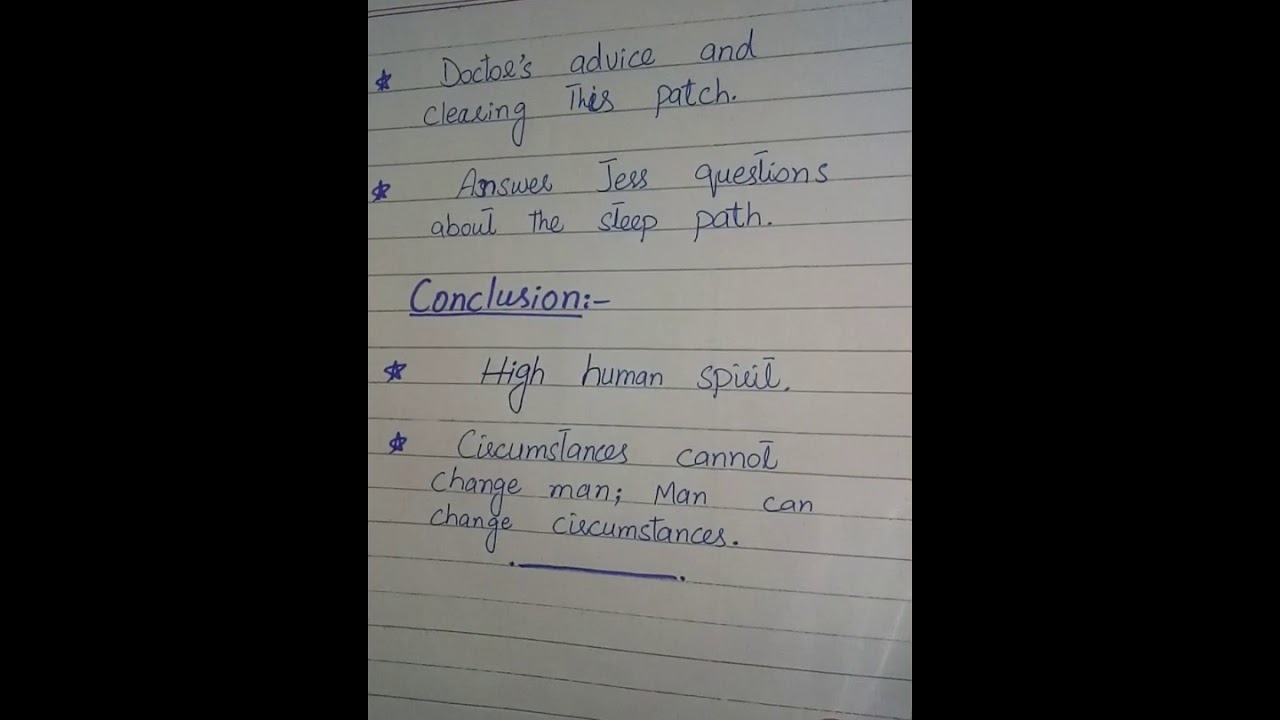 ★ Doctor's advice and
clearing This patch.
★ Answer Jess questions
about the steep path.
Conclusion:-
★ High human spirit.
★ Circumstances cannot
change man; Man can
change circumstances.